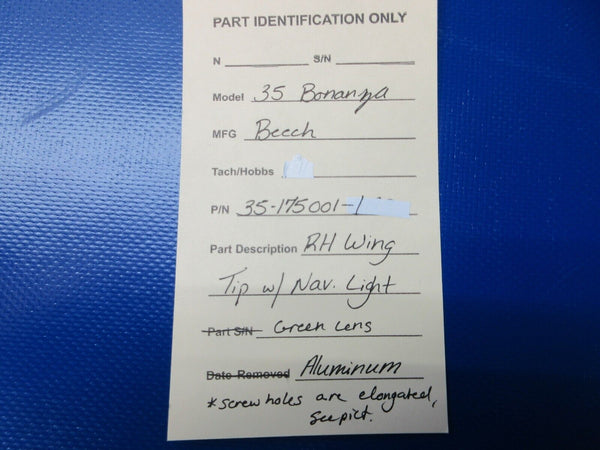 PART IDENTIFICATION ONLY
N S/N
Model 35 Bonanza
MFG Beech
Tach/Hobbs
P/N 35-175001-1
Part Description RH Wing
Tip w/ Nav. Light
Part S/N Green Lens
Date Removed Aluminum
*screw holes are elongated,
see pict.